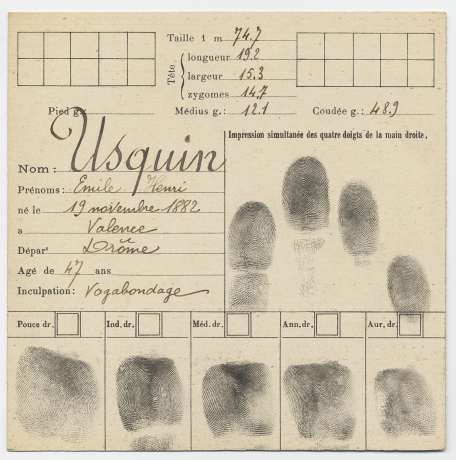 Taille 1 m 74.7
Tête
longueur 19.2
largeur 15.3
zygomes 14.7
Pied g. Médius g.: 12.1 Coudée g.: 48.9
Impression simultanée des quatre doigts de la main droite.
Nom: Usquin
Prénoms: Emile Henri
né le 19 novembre 1882
a Valence
Dépar^t Drôme
Agé de 47 ans
Inculpation: Vagabondage
Pouce dr. Ind. dr. Méd. dr. Ann. dr. Aur. dr.